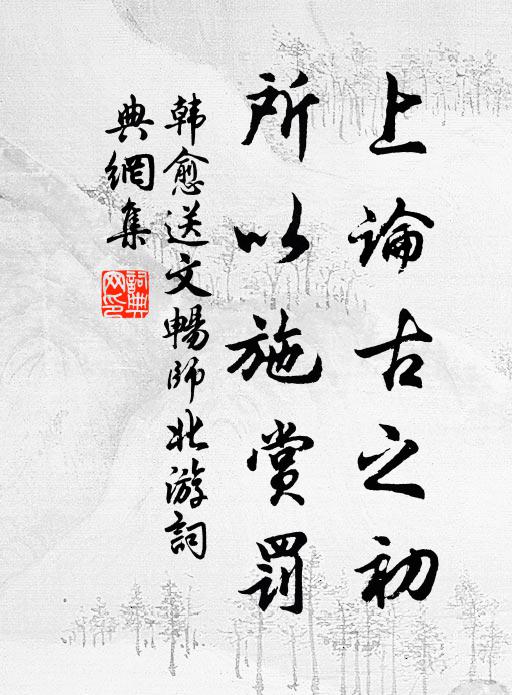 上論古之初
所以施賞罰
韩愈送文暢師北游詞
典網集
詞典
网印